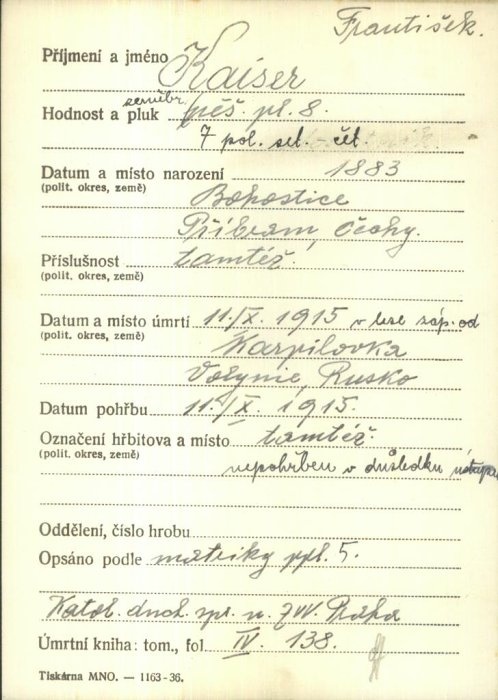 František.
Příjmení a jméno Kaiser
Hodnost a pluk zeměbr. pěš. pl. 8.
7 pol. set. čet.
Datum a místo narození 1883
(polit. okres, země) Bohostice
Příbram, Čechy.
Příslušnost tamtéž.
(polit. okres, země)
Datum a místo úmrtí 11./X. 1915 v lese záp. od
(polit. okres, země) Karpilovka
Volynie, Rusko
Datum pohřbu 11./X. 1915.
Označení hřbitova a místo tamtéž.
(polit. okres, země) nepohřben v důsledku
Oddělení, číslo hrobu
Opsáno podle matriky ppl. 5.
Katol. duch. spr. u ZVV. Praha
Úmrtní kniha: tom., fol. IV. 138.
Tiskárna MNO. — 1163-36.